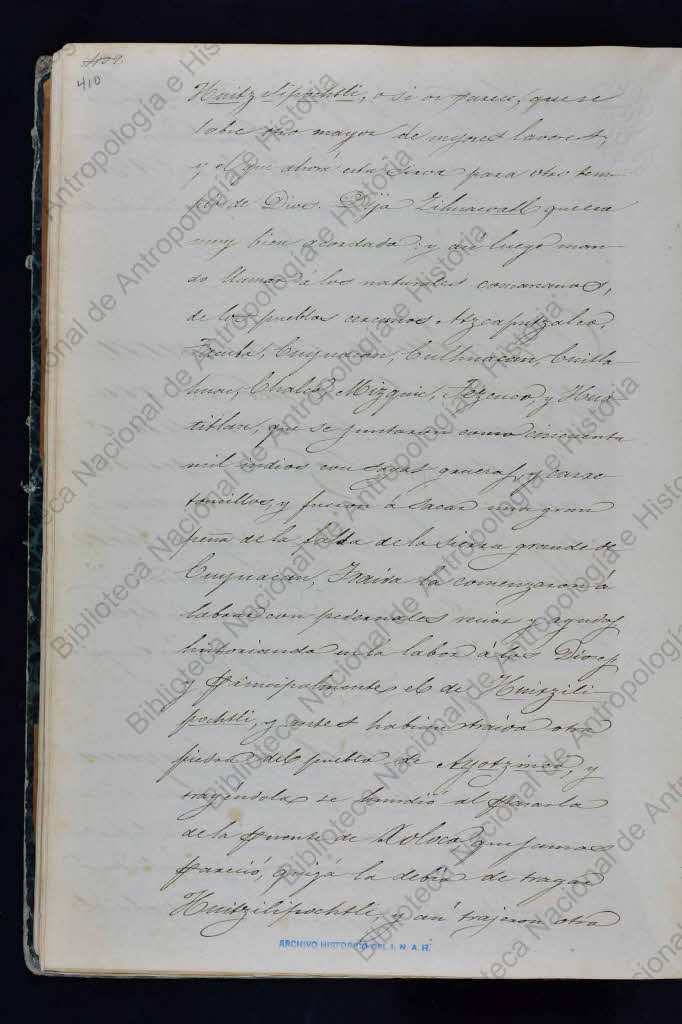 409.
410
Huitzilipochtli, o si os parece, que se
labre otro mayor de mejores labores,
y el que ahora esta sirva para otro tem-
plo de Dios. Dijo Zihuacoatl que era
muy bien acordado: y asi luego man-
do llamar a los naturales comarcanos,
de los pueblos cercanos Atzcaputzalco,
Tacuba, Cuyuacan, Culhuacan, Cuitla-
huac, Chalco, Mizquic, Tezcuco, y Hua-
titlan, que se juntaron como cincuenta
mil indios con sogas gruesas, y carre-
toncillos, y fueron á sacar una gran
peña de la falda de la Sierra grande de
Cuyuacan, Traida la comenzaron á
labrar con pedernales recios y agudos
historiando en la labor á los Dioses
y principalmente el de Huitzili-
pochtli, y antes habian traido otra
piedra del pueblo de Ayotzinco, y
trayéndola se hundió al pasarla
de la puente de Xoloco, que jamas
pareció, quizá la debió de tragar
Huitzilipochtli, y asi trajeron otra
ARCHIVO HISTORICO DEL I. N. A. H.
Biblioteca Nacional de Antropología e Historia